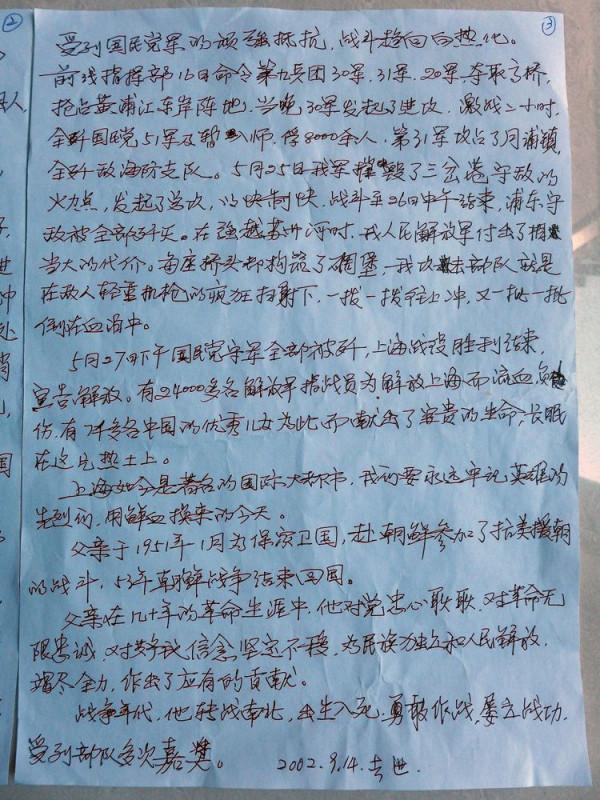 ②
③
受到国民党军的顽强抵抗，战斗趋向白热化。
前线指挥部16日命令第九兵团30军.31军.20军.夺取高桥，
抢占黄浦江东岸阵地.当晚30军发起了进攻.激战二小时.
全歼国民党51军及暂八师.俘8000余人.第31军攻占了月浦镇，
全歼敌海防支队。5月25日我军摧毁了三岔港守敌的
火力点，发起了总攻，以快制快.战斗至26日中午结束，浦东守
敌被全部歼灭。在强越苏州河时.我人民解放军付出了相
当大的代价。每座桥头都构筑了碉堡.我攻击部队就是
在敌人轻重机枪的疯狂扫射下，一拨一拨往上冲，又一批一批
倒在血泊中。
5月27日下午国民党守军全部被歼，上海战役胜利结束，
宣告解放。有24000多名解放军指战员为解放上海而流血负
伤，有7千多名中国的优秀儿女为此而献出了宝贵的生命，长眠
在这片热土上。
上海如今是著名的国际大都市，我们要永远牢记英雄的
先烈们，用鲜血换来的今天。
父亲于1951年1月为保家卫国，赴朝鲜参加了抗美援朝
的战斗，53年朝鲜战争结束回国。
父亲在几十年的革命生涯中，他对党忠心耿耿.对革命无
限忠诚.对共产主义信念坚定不移，为民族独立和人民解放，
竭尽全力，作出了应有的贡献。
战争年代，他转战南北，出生入死.勇敢作战，屡立战功，
受到部队多次嘉奖。 2002.9.14.去世.